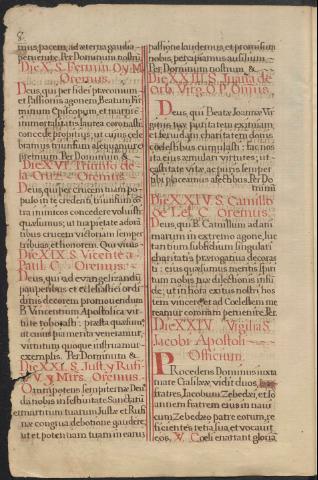 8.
mus, pacem, ad æterna gaudia
peruenire. Per Dominum nostrũ
Die X. S. Fermin Ob. y M.
Oremus.
Deus, qui per fidei præconium
et Passionis agonem, Beatum Fir
minum Episcopum, et martirẽ
immortalitatis laurea coronasti
concede propitius: ut cuius cele
bramus triumfum, assequamur
premium. Per Dominum &
Die XVI. Triunfo de
la Cruz Oremus.
Deus, qui per Crucem tuam po
pulo in te credenti, triunfum cõ
tra inimicos concedere voluisti
quæsumus: ut tua pietate adorã
tibus crucem, victoriam semper
tribuas, et honorem. Qui vivis
Die XIX. S. Vicente a
Paul C. Oremus.
Deus, qui ad evangelizandũ
pauperibus, et ecclesiastici ordi
nis decorem promouendum
B. Vincentium Apostolica vir
tute roborasti: præsta quæsum
ut cuius pia merita veneramur,
virtutum quoque instruamur
exemplis. Per Dominum &
Die XXI. S. Just. y Rufi
V. y Mrs. Oremus.
Omnipotens sempiterne Deus
da nobis in festiuitate Sanctarũ
et martirum tuarum Justæ et Rufi
næ congrua debotione gaudere,
ut et potentiam tuam in earum
passione laudemus, et promissum
nobis percipiamus auxilium.
Per Dominum nostrum &
Die XXIII. S. Juana de
Orta, Virg. O. P. Omus.
Deus, qui Beatæ Joannæ Vir
ginis tuæ puritatem eximiam,
et benignam charitatem donis
cœlestibus cumulasti: fac nos
ita eius æmulari virtutes; ut
castitate vitæ, ac puris semper
tibi placeamus affectibus. Per Do
minũ
Die XXIV. S. Camillo
de Lel. C. Oremus.
Deus, qui B. Camillum ad ani
marum in extremo agone, luc
tantium subsidium, singulari
charitatis prærogatiua decoras
ti: eius quæsumus meritis, spiri
tum nobis tuæ dilectionis infũ
de; ut in hora exitus nostri, hos
tem vincere, et ad Cœlestem me
reamur coronam peruenire. Per
Die XXIV. Vigilia S.
Jacobi Apostoli
Officium.
Procedens Dominus iuxta
mare Galilææ, vidit duos,
fratres, Jacobum Zebedæi, et Jo
annem fratrem eius in naui
cum Zebedæo patre eorum, re
ficientes retia sua, et vocauit
eos. V. Cœli enarrant gloriã